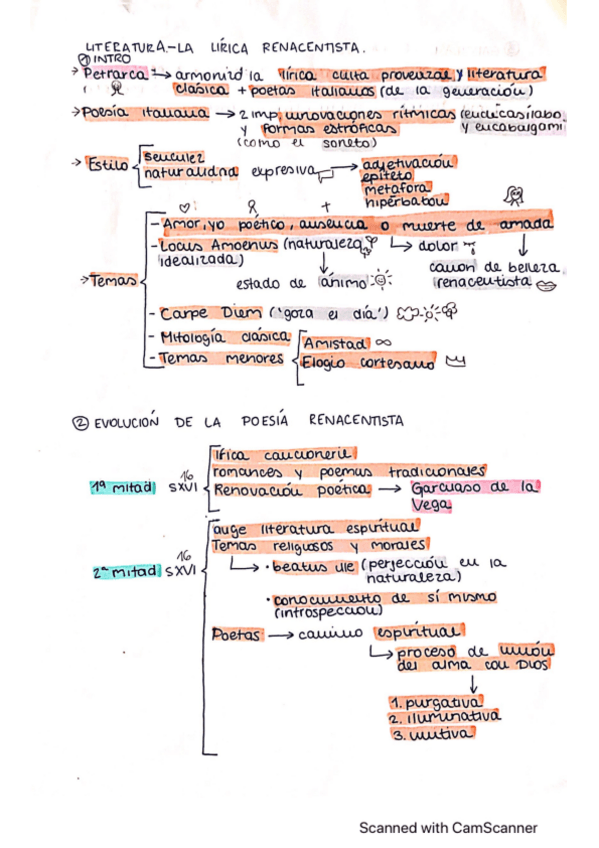 LITERATURA.-LA LÍRICA RENACENTISTA.
① INTRO
→ Petrarca → armonizó la lírica culta provenzal y literatura
clásica + poetas italianos (de la generación)
→ Poesía italiana → 2 imp, innovaciones rítmicas (endecasílabo
y formas estróficas y encabalgami
(como el soneto)
→ Estilo sencillez
naturalidad expresiva → adjetivación
epíteto
metáfora
hipérbaton
→ Temas
- Amor, yo poético, ausencia o muerte de amada
- Locus Amoenus (naturaleza → dolor
idealizada) canon de belleza
estado de ánimo renacentista
- Carpe Diem ('goza el día')
- Mitología clásica Amistad ∞
- Temas menores Elogio cortesano
② EVOLUCIÓN DE LA POESÍA RENACENTISTA
lírica cancioneril
romances y poemas tradicionales
1ª mitad SXVI 16 Renovación poética → Garcilaso de la
Vega
auge literatura espiritual
Temas religiosos y morales
2ª mitad SXVI 16 • beatus ille (perfección en la
naturaleza)
• conocimiento de sí mismo
(introspección)
Poetas → camino espiritual
proceso de unión
del alma con DIOS
1. purgativa
2. iluminativa
3. unitiva
Scanned with CamScanner